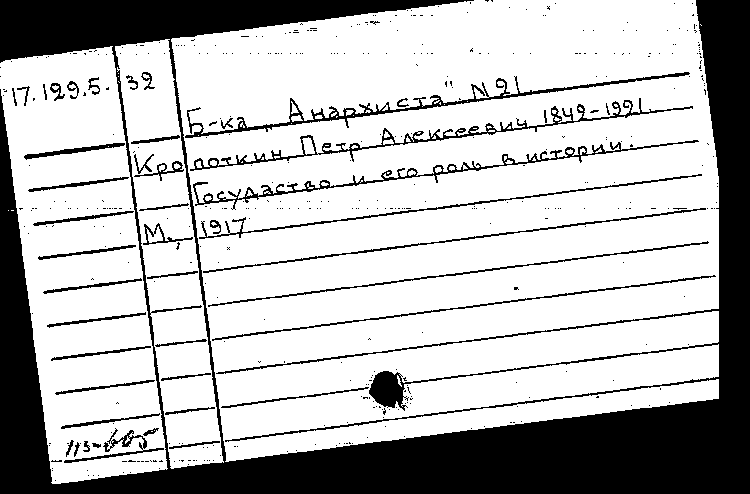 17.129.5. 32
Б-ка „Анархиста" N21
Кропоткин, Петр Алексеевич, 1842-1921.
Госудаство и его роль в истории.
М., 1917
113-605